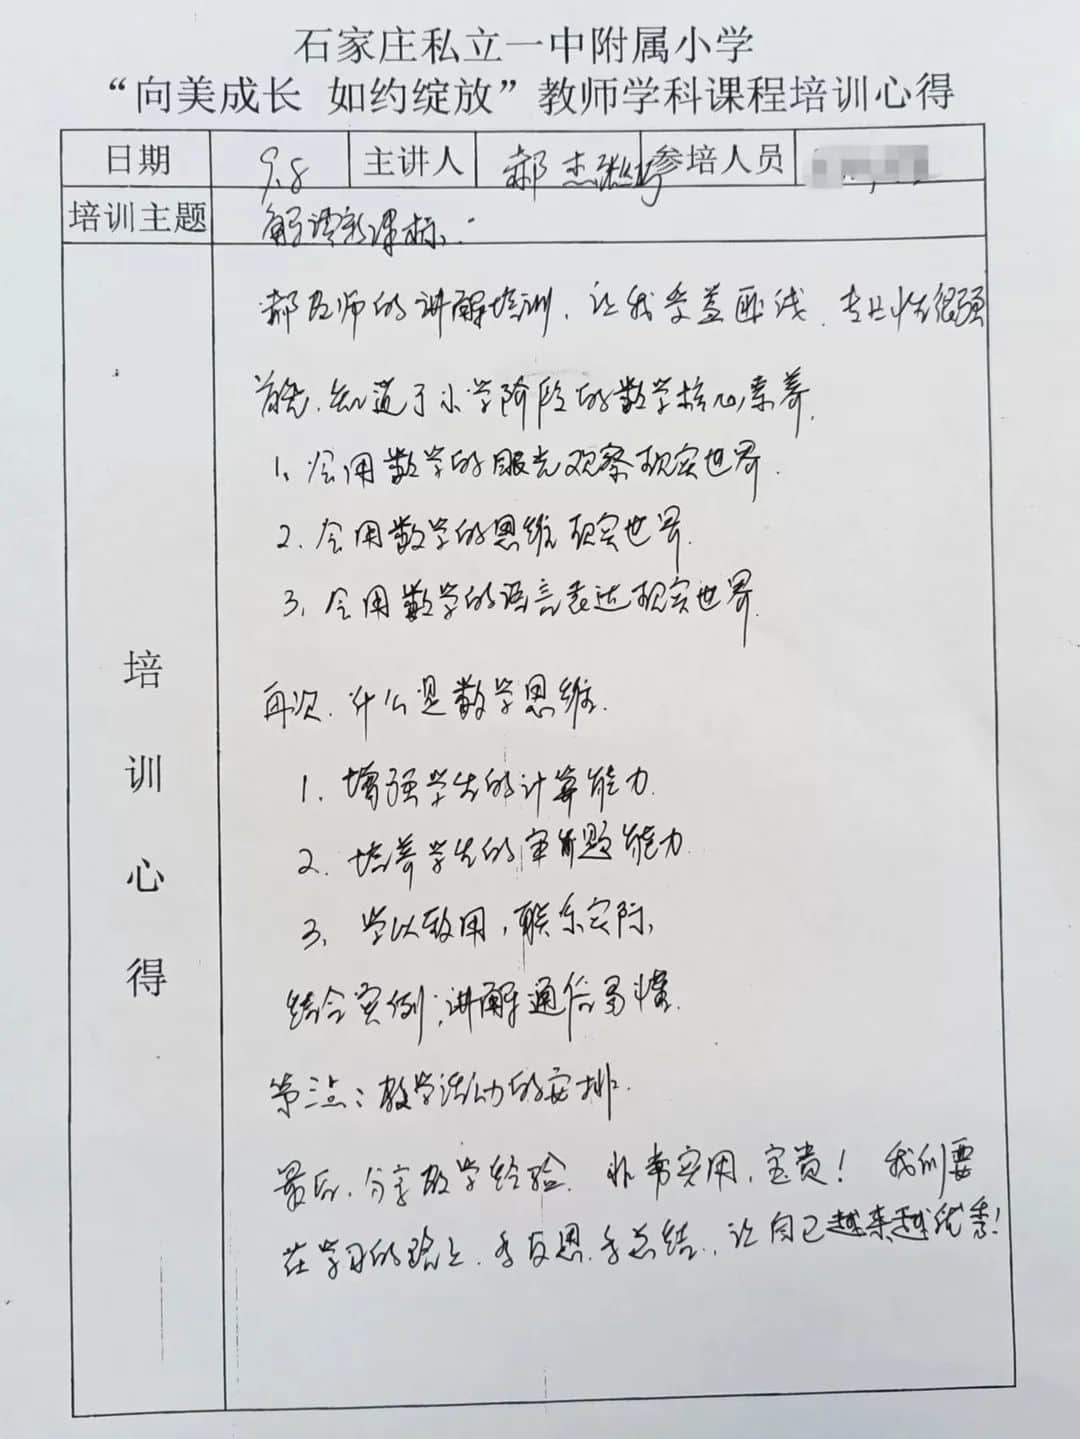 石家庄私立一中附属小学
“向美成长 如约绽放”教师学科课程培训心得
日期 9.8 主讲人 郝杰 参培人员
培训主题 解读新课标.
培训心得
郝老师的讲解培训，让我受益匪浅，专业性很强
首先，知道了小学阶段的数学核心素养.
1、会用数学的眼光观察现实世界.
2、会用数学的思维现实世界.
3、会用数学的语言表达现实世界.
再次，什么是数学思维.
1、增强学生的计算能力.
2、培养学生的审题能力.
3、学以致用，联系实际，
结合实例，讲解通俗易懂.
第三点：教学活动的安排.
最后，分享教学经验，非常实用，宝贵！我们要
在学习的路上，多反思，多总结，让自己越来越优秀！